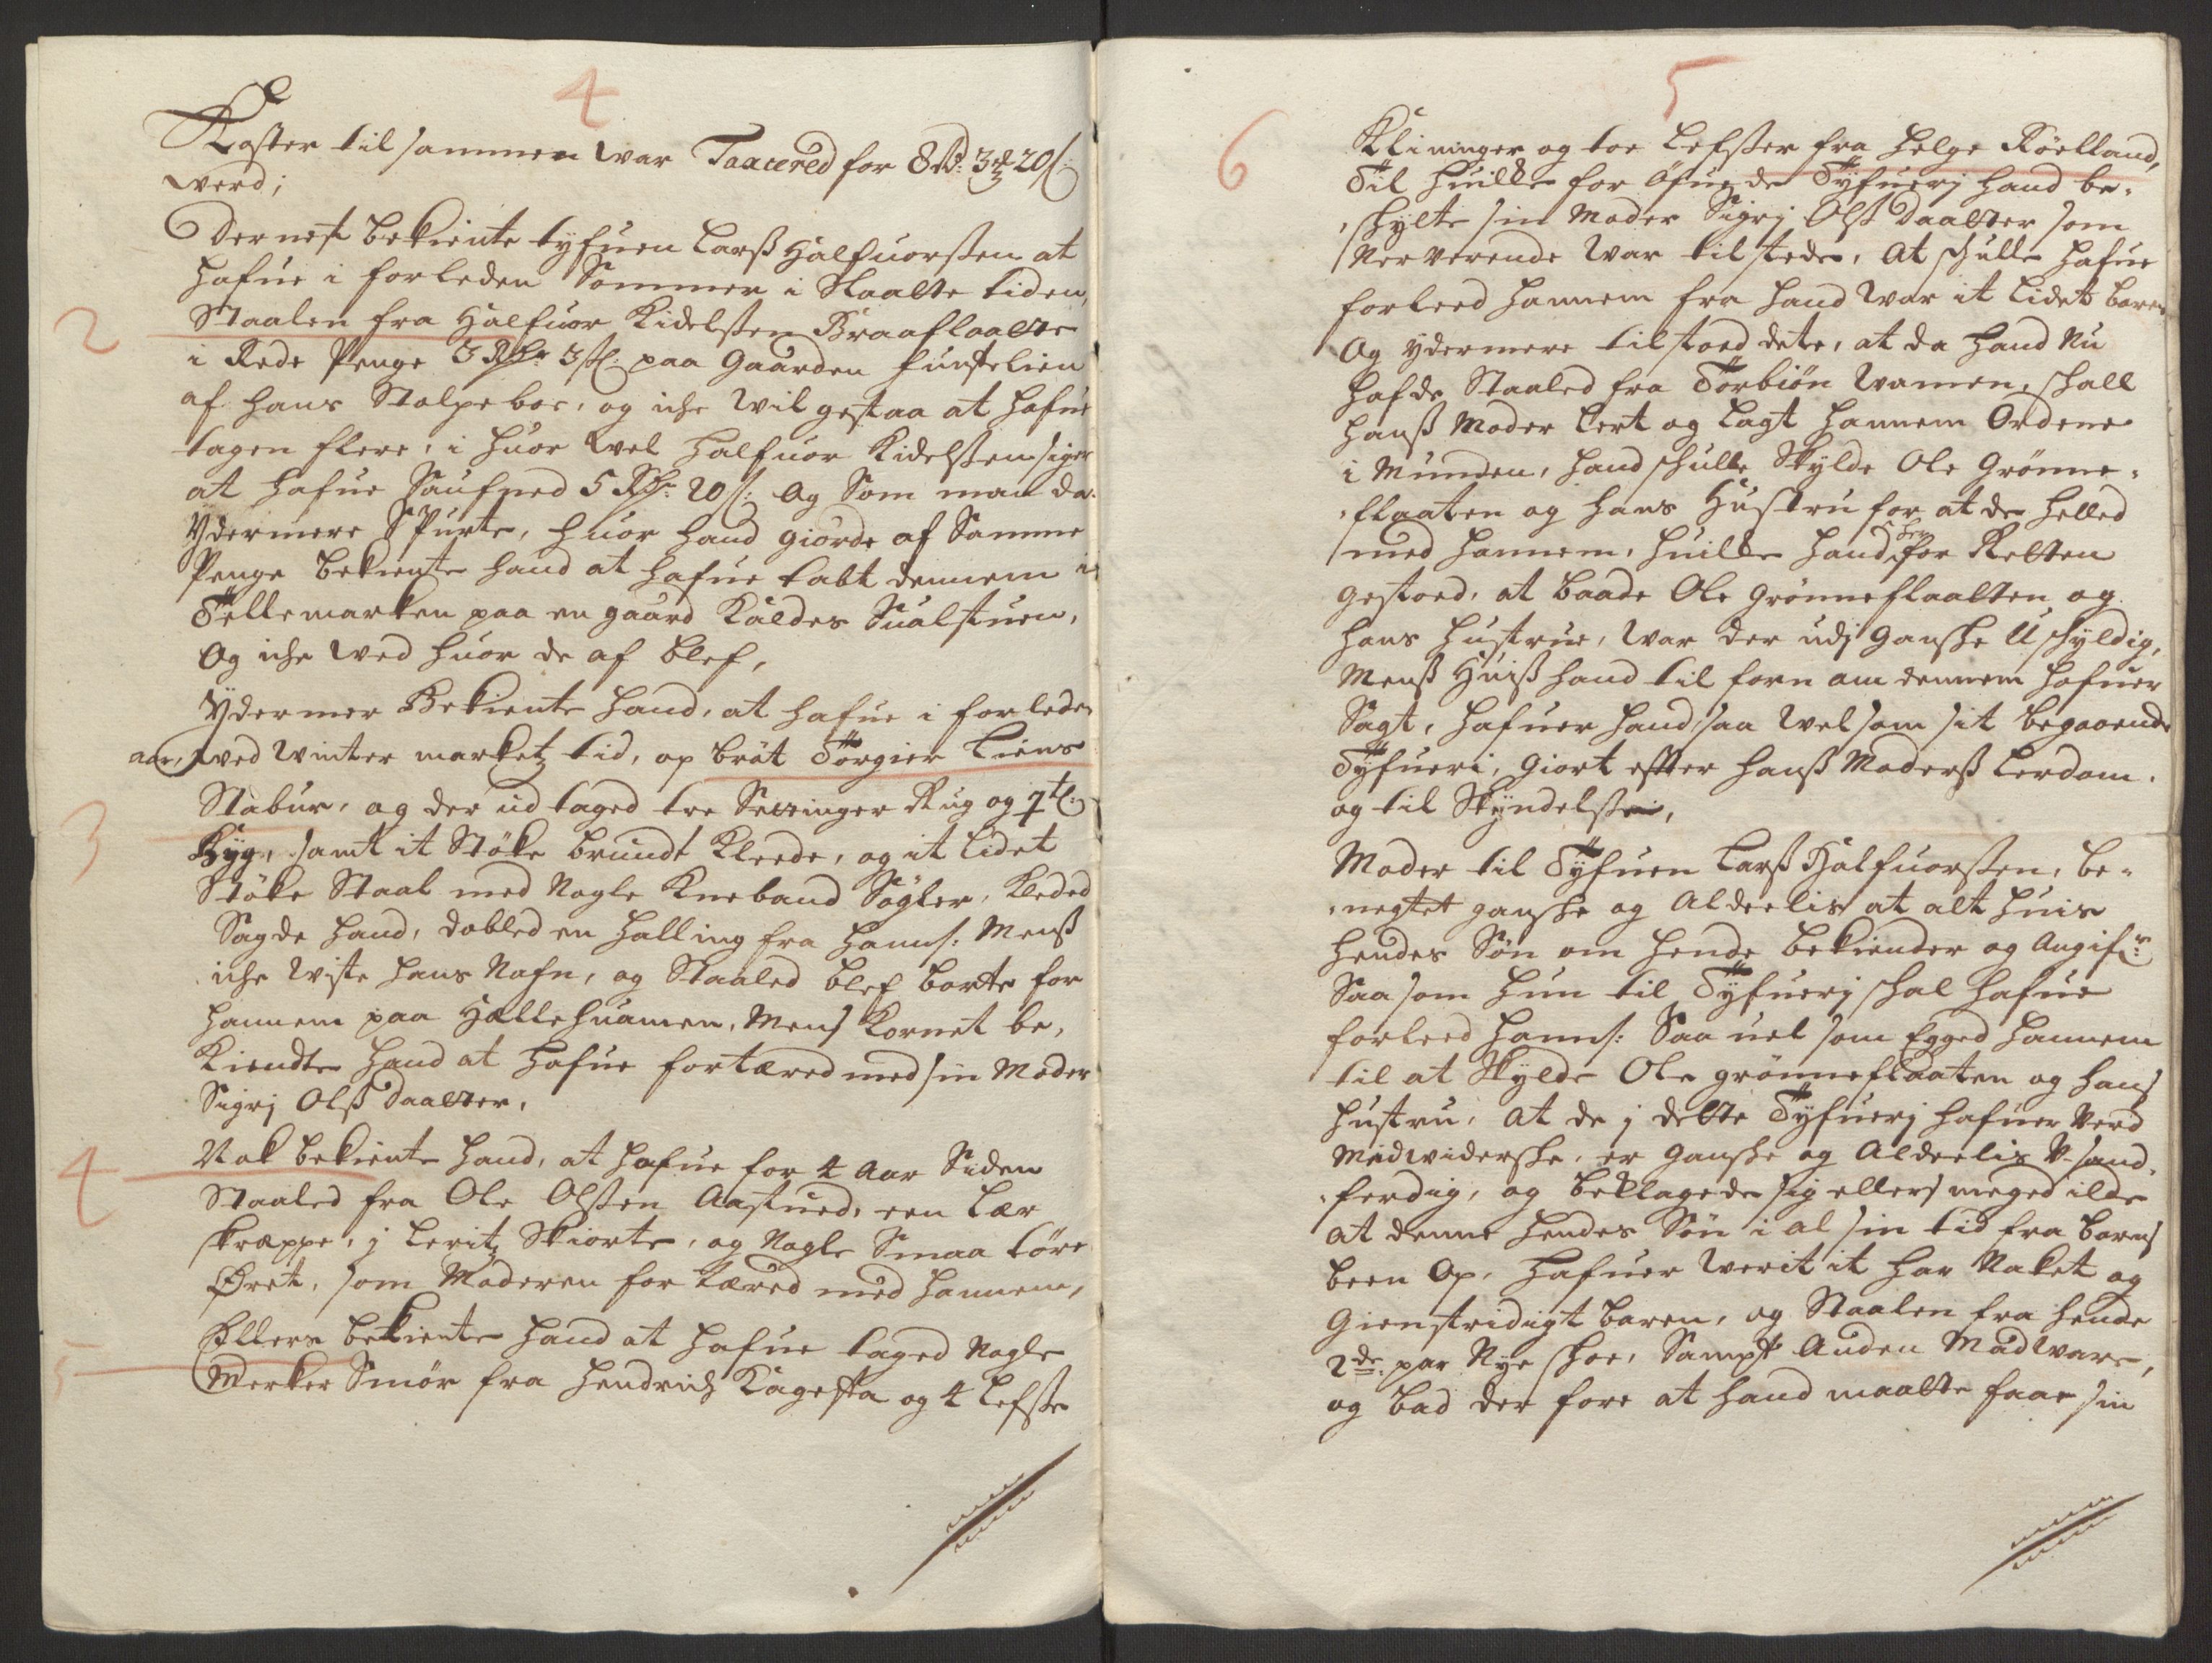 4
Koster til sammen war Taxcered for 8 Rd: 3 ℔ 20 s:
werd;
Dernest bekiente tyfuen Larß Halfuorsten at
hafue i forleden Sommer i Slaatte tiden,
2
Staalen fra Halfuor Kidelsten Braaflaatte
i Rede Penge 3 Rdr 3 s: paa Gaarden
af hans Stolpeboe, og iche wil gestaa at hafue
tagen flere, i huor wel Halfuor Kidelsten siger
at hafue Saufned 5 Rdr 20 s: Og Som man da
Ydermere Spurte, huor hand giorde af Samme
Penge bekiente hand at hafue tabt dennem i
Tellemarken paa en gaard Kaldes Sualstuen,
Og iche wed huor de af blef,
Ydermer Bekiente hand, at hafue i forleden
aar, wed winter marketz tid, op bröt Torgier Liens
3
Stabur, og der ud taged tre Settinger Rug og 1 tl:
Byg, samt it Stöke brundt Kleede, og it lidet
Stöke Staal med Nogle Knebaand Sögler, Kleded
Sagde hand, dobled en Halling fra hanns: Menß
iche wiste hans Nafn, og Staaled blef borte for
hannem paa Hallehuamen, Mens Kornet be,
Kiendte hand at hafue fortæred med sin Moder
Sigrj Olß daatter,
4
Nok bekiente hand, at hafue for 4 Aar Siden
Staaled fra Ole Olsten Aastued, een Lær
skræppe, j Leritz Skiorte, og Nogle Smaa töre
Öret, som Moderen for tæred med hannem,
5
Ellers bekiente hand at hafue taged Nogle
Merker Smör fra Hendrich Kagesta og 4 Lefste
5
6
Klininger og toe Lefster fra Helge Röelland,
Til huilke for öfuede Tyfuerj hand be-
skylte sin Moder Sigrj Olß daatter som
Nerverende war tilstede, At schulle hafue
forleed hannem fra hand war it lidet baren
Og ydermere tilstoed dete, at da hand Nu
hafde Staaled fra Torbiön wamen, schall
hanß Moder lert og lagt hannem Ordene
i Munden, hand schulle Skylde Ole Grönne-
flaaten og hans Hustru for at de helled
med hannem, huilke hand her for Retten
gestoed, at baade Ole Grönneflaatten og
hans hustrue, war der udj ganske Uskyldig,
Menß Huiß hand til forn om dennem hafuer
Sagt, hafuer hand saa wel som sit begaaende
Tyfueri, Giort efter hanß Moderß Lerdom.
og til Skyndelste,
Moder til Tyfuen Larß Halfuorsten, be-
negtet ganske og Aldeelis at alt huis
hendes Sön om hende bekiender og Angifr:
Saa som hun til Tyfuerj schal hafue
forleed hanns: Saa uel som Egged hannem
til at Skylde Ole grönneflaaten og hans
Hustru, at de j dette Tyfuerj hafuer Verd
Medwiderske, er ganske og Aldeelis V-sand-
ferdig, og beklagede sig ellers meged ilde
at denne hendes Sön i al sin tid fra barns
been Op, hafuer werit it har Naket og
Gienstridigt baren, og Staalen fra hende
2de par Nye skoe, Sampt Anden Madware,
og bad der fore at hand maatte faae sin